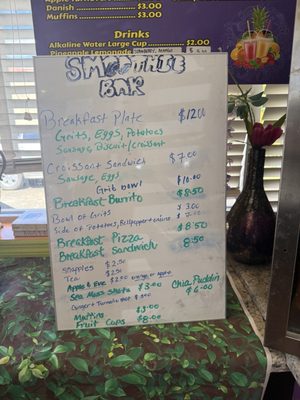 Danish $3.00
Muffins $3.00
Drinks
Alkaline Water Large Cup $2.00
Pineapple Lemonade
SMOOTHIE
BAR
Breakfast Plate $12.00
Grits, Eggs, Potatoes
Sausag, Biscuit/croissant
Croissant Sandwich $7.00
Sausage, Eggs
Grit bowl $10.00
Breakfast Burrito $8.50
Bowl of Grits $3.00
Side of Potatoes, Bellpepper+onions $7.00
Breakfast Pizza $8.50
Breakfast Sandwich 8.50
Snapples $2.50
Tea $2.50
Apple & Eve $2.00 orange or apple
Sea Moss Shots $3.00
Chia Puddin
$6.00
Ginger + Tumeric
Muffins $3.00
Fruit Cups $8.00